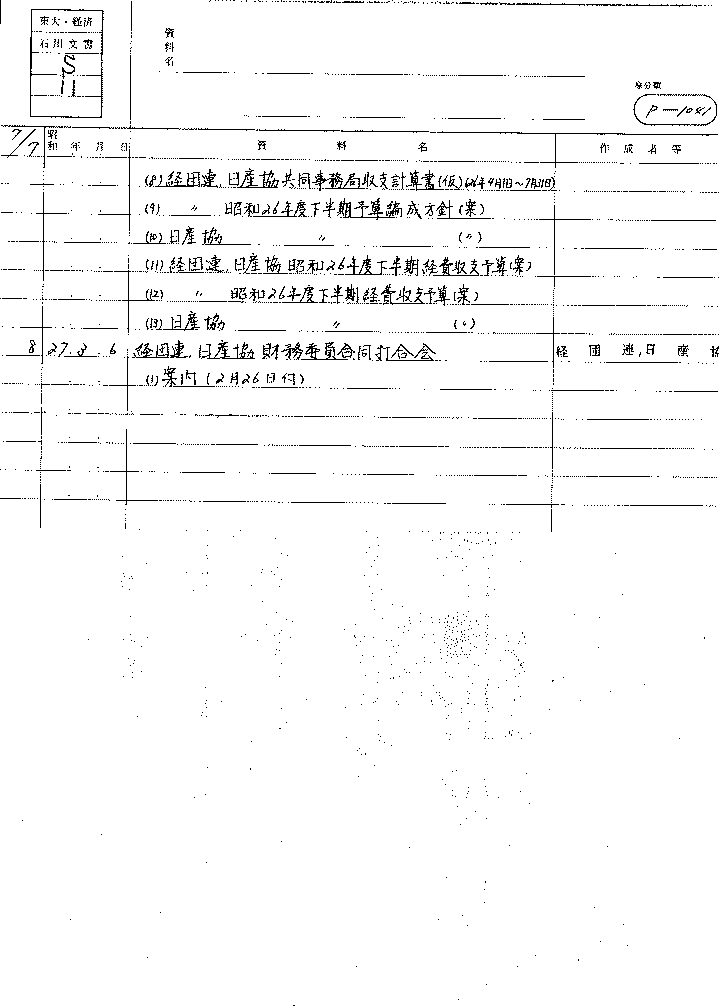 東大・経済
石川文書
S
11
資料名
※分類
P-1041
7/7
昭和 年 月 日 資料名 作成者等
(8) 経団連、日産協共同事務局収支計算書(仮)(26年4月1日～7月31日)
(9) 〃 昭和26年度下半期予算編成方針(案)
(10) 日産協 〃 (〃)
(11) 経団連、日産協 昭和26年度下半期経費収支予算(案)
(12) 〃 昭和26年度下半期経費収支予算(案)
(13) 日産協 〃 (〃)
8 27.3.6 経団連、日産協財務委員合同打合会 経団連,日産協
(1) 案内(2月26日付)